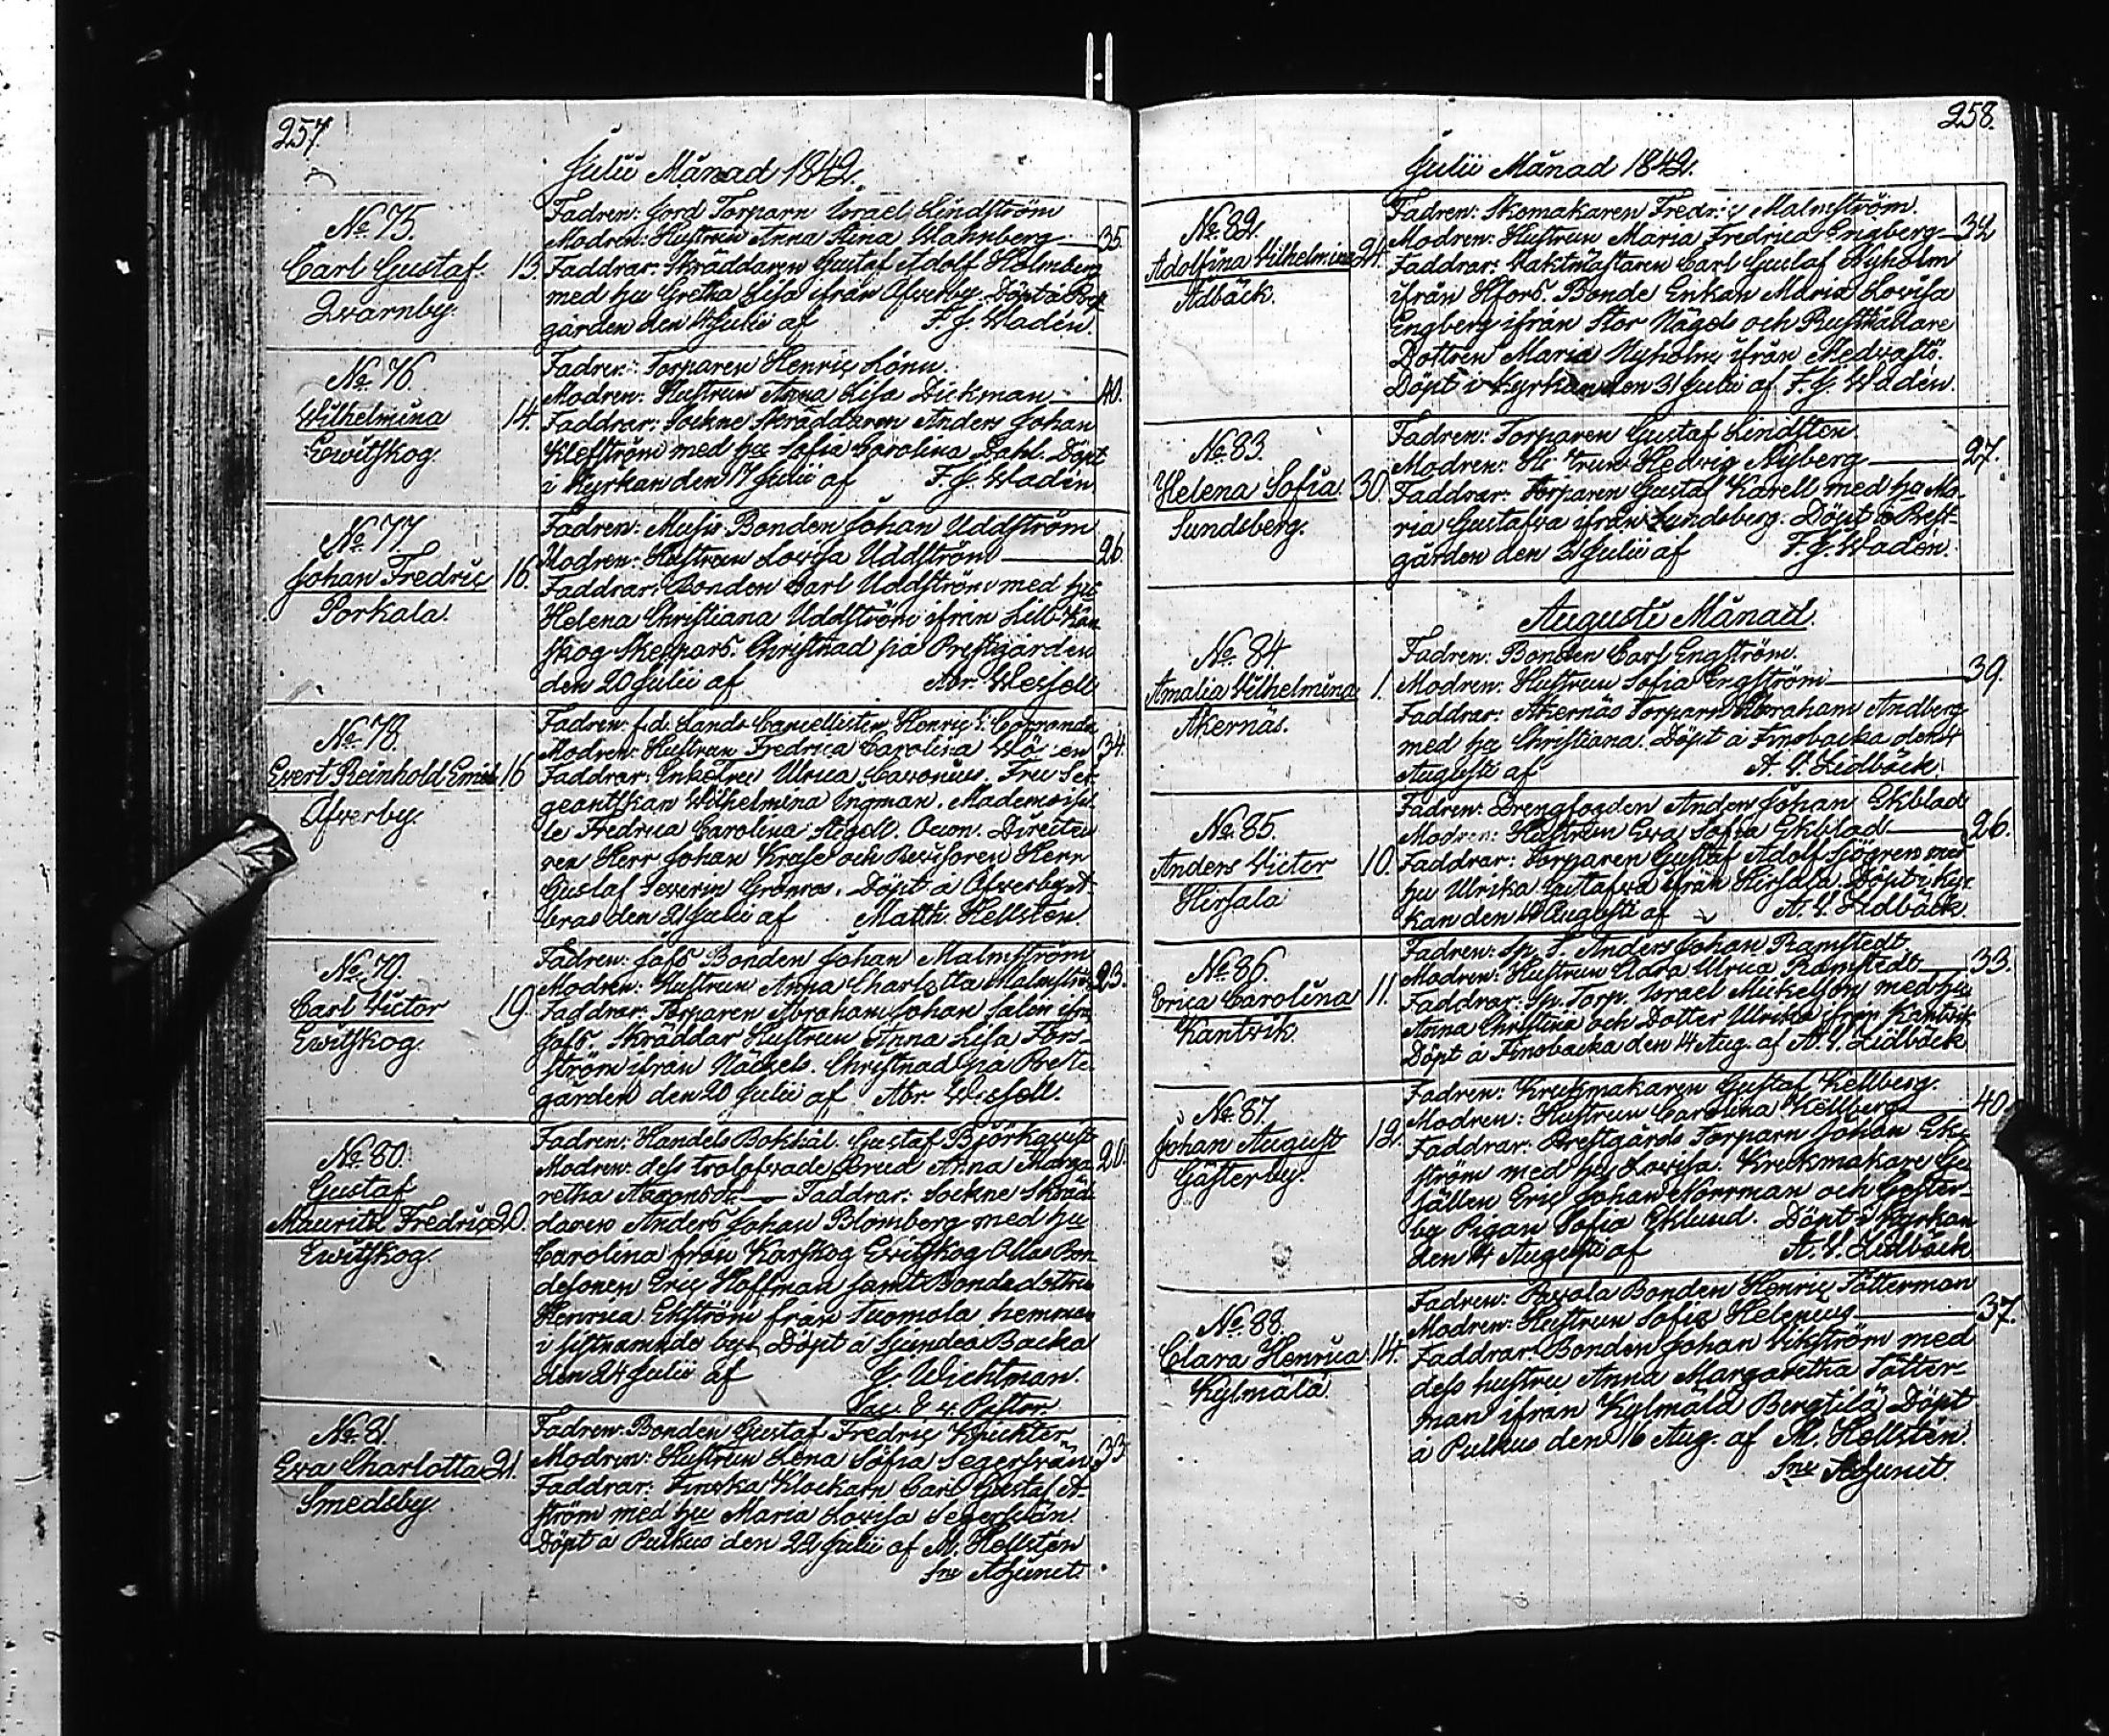 257.
Julii Månad 1842.
No. 75.
Carl Gustaf. 13.
Qvarnby.
Fadren: Jord Torparn Israel Lindström
Modren: Hustrun Anna Stina Wahnberg 35.
Faddrar: Skräddaren Gustaf Adolf Holmberg
med hu Gretha Lisa ifrån Öfverby. Döpt å Prest
gården den Julii af F. J. Wadén.
No. 76.
Wilhelmina 14.
Ewitskog.
Fadren: Torparen Henric Lönn.
Modren: Hustrun Anna Lisa Dickman 40.
Faddrar: Sockne Skräddaren Anders Johan
Klefström med hu Sofia Carolina Dahl. Döpt
i Kyrkan den 17 Julii af F. J. Wadén
No. 77.
Johan Fredric 16.
Porkala.
Fadren: Bonden Johan Uddström
Modren: Hustrun Lovisa Uddström 26.
Faddrar: Bonden Carl Uddström med hu
Helena Christiana Uddström ifrån Lill Kan
skog Skeppars. Christnad på Prestgården
den 20 Julii af Abr. Wessell
No. 78.
Evert Reinhold Emil 16
Öfverby.
Fadren: f.d. Lands Cancellisten Henric
Modren: Hustrun Fredrica Carolina 34.
Faddrar: Enkefru Ulrica Caronius. Fru Ser
geantskan Wilhelmina Ingman. Mademoisel
le Fredrica Carolina Stigell. Oecon. Directeu
ren Herr Johan och Revisoren Herr
Gustaf Severin Grönros. Döpt å Öfverby
den 21 Julii af Matth. Hellsten.
No. 79.
Carl Victor 19.
Ewitskog.
Fadren: Jofs Bonden Johan Malmström
Modren: Hustrun Anna Charlotta Malmströ 23.
Faddrar: Torparen Abraham Johan Salen ifrå
Jofs. Skräddar Hustrun Anna Lisa Fors-
ström ifrån Näckels. Christnad på Preste
gården den 20 Julii af Abr. Wessell.
No. 80.
Gustaf
Mauritz Fredric 20.
Ewitskog.
Fadren: Handels Bokhål. Gustaf Björkqvist
Modren: dess trolofvade Brud Anna Marga 20.
retha Faddrar: Sockne Skräd
daren Anders Johan Blomberg med hu
Carolina från Karskog Ewitskog Ollas Bon
desonen Eric Hoffman samt Bondedottren
Henrica Ekström från Suomola hemman
i sistnämnde by. Döpt å Sjundeå Backa
den 24 Julii af J. Wichtman.
No. 81.
Eva Charlotta 21.
Smedsby.
Fadren: Bonden Gustaf Fredric
Modren: Hustrun Lena Sofia Segersvän 33
Faddrar: Finska Klockarn Carl Gustaf
ström med hu Maria Lovisa
Döpt å Pulkus den 22 Julii af M. Hellsten
Sne Adjunct.
258.
Julii Månad 1842.
No. 82.
Adolfina Wilhelmina 24.
Adbäck.
Fadren: Skomakaren Fredric Malmström.
Modren: Hustrun Maria Fredrica Engberg 32
Faddrar: Waktmästaren Carl Gustaf Nyholm
ifrån Hfors. Bonde Enkan Maria Lovisa
Engberg ifrån Stor Nägels och Rusthållare
Dottren Maria Nyholm ifrån Medvastö.
Döpt i Kyrkan den 31 Julii af F. J. Wadén.
No. 83.
Helena Sofia. 30.
Sundsberg.
Fadren: Torparen Gustaf Lindsten.
Modren: Hustrun Hedvig Nyberg 27.
Faddrar: Torparen Gustaf Karell med hu Ma-
ria Gustafva ifrån Sundsberg. Döpt å Prest-
gården den 31 Julii af F. J. Wadén.
Augusti Månad.
No. 84.
Amalia Wilhelmina 1.
Åkernäs.
Fadren: Bonden Carl Engström.
Modren: Hustrun Sofia Engström 39.
Faddrar: Åkernäs Torparn Abraham Andberg
med hu Christiana. Döpt å Finsbacka den
Augusti af A. G. Lidbäck.
No. 85.
Anders Victor 10.
Hirsala
Fadren: Drengfogden Anders Johan Ekblad
Modren: Hustrun Eva Sofia Ekblad 26.
Faddrar: Torparen Gustaf Adolf Sjögren med
hu Ulrika Gustafva ifrån Hirsala. Döpt i Kyr
kan den 14 Augusti af A. G. Lidbäck.
No. 86.
Erica Carolina 11.
Kantwik.
Fadren: Sp. T. Anders Johan Ramstedt
Modren: Hustrun Clara Ulrica Ramstedt 33.
Faddrar: Sp. Torp. Israel Mickelson med hu
Anna Christina och Dotter Ulrika ifrån Kantwik
Döpt å Finsbacka den 14 Aug. af A. G. Lidbäck
No. 87.
Johan August 12.
Gästerby.
Fadren: Krukmakaren Gustaf Kellberg.
Modren: Hustrun Carolina Kellberg 40.
Faddrar: Prestgårds Torparn Johan Ek-
ström med hu Lovisa. Krukmakare Ge
sällen Eric Johan Norrman och Gester-
by Pigan Sofia Eklund. Döpt i Kyrkan
den 14 Augusti af A. G. Lidbäck
No. 88.
Clara Henrica 14.
Kylmälä.
Fadren: Pavola Bonden Henric Tötterman
Modren: Hustrun Sofia Helenius 37.
Faddrar Bonden Johan Wikström med
dess hustru Anna Margaretha Tötter-
man ifrån Kylmälä Bergtilä Döpt
å Pulkus den 16 Aug. af M. Hellstén.
Sne Adjunct.